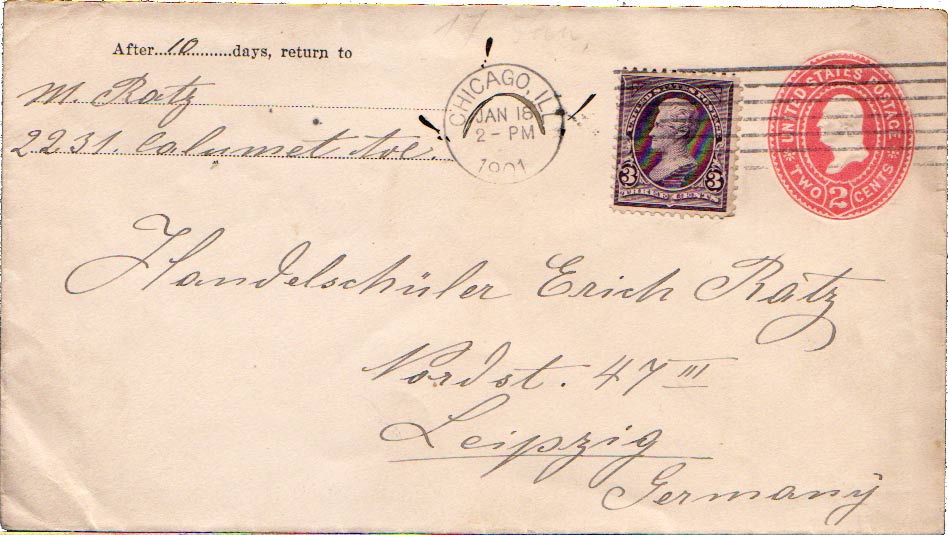 After 10 days, return to
M. Ratz
2231. Calumet Ave.
CHICAGO, ILL
JAN 18
2 - PM
1901
3 3
UNITED STATES POSTAGE
TWO 2 CENTS
Handelschüler Erich Ratz
Nordst. 47 III
Leipzig
Germany